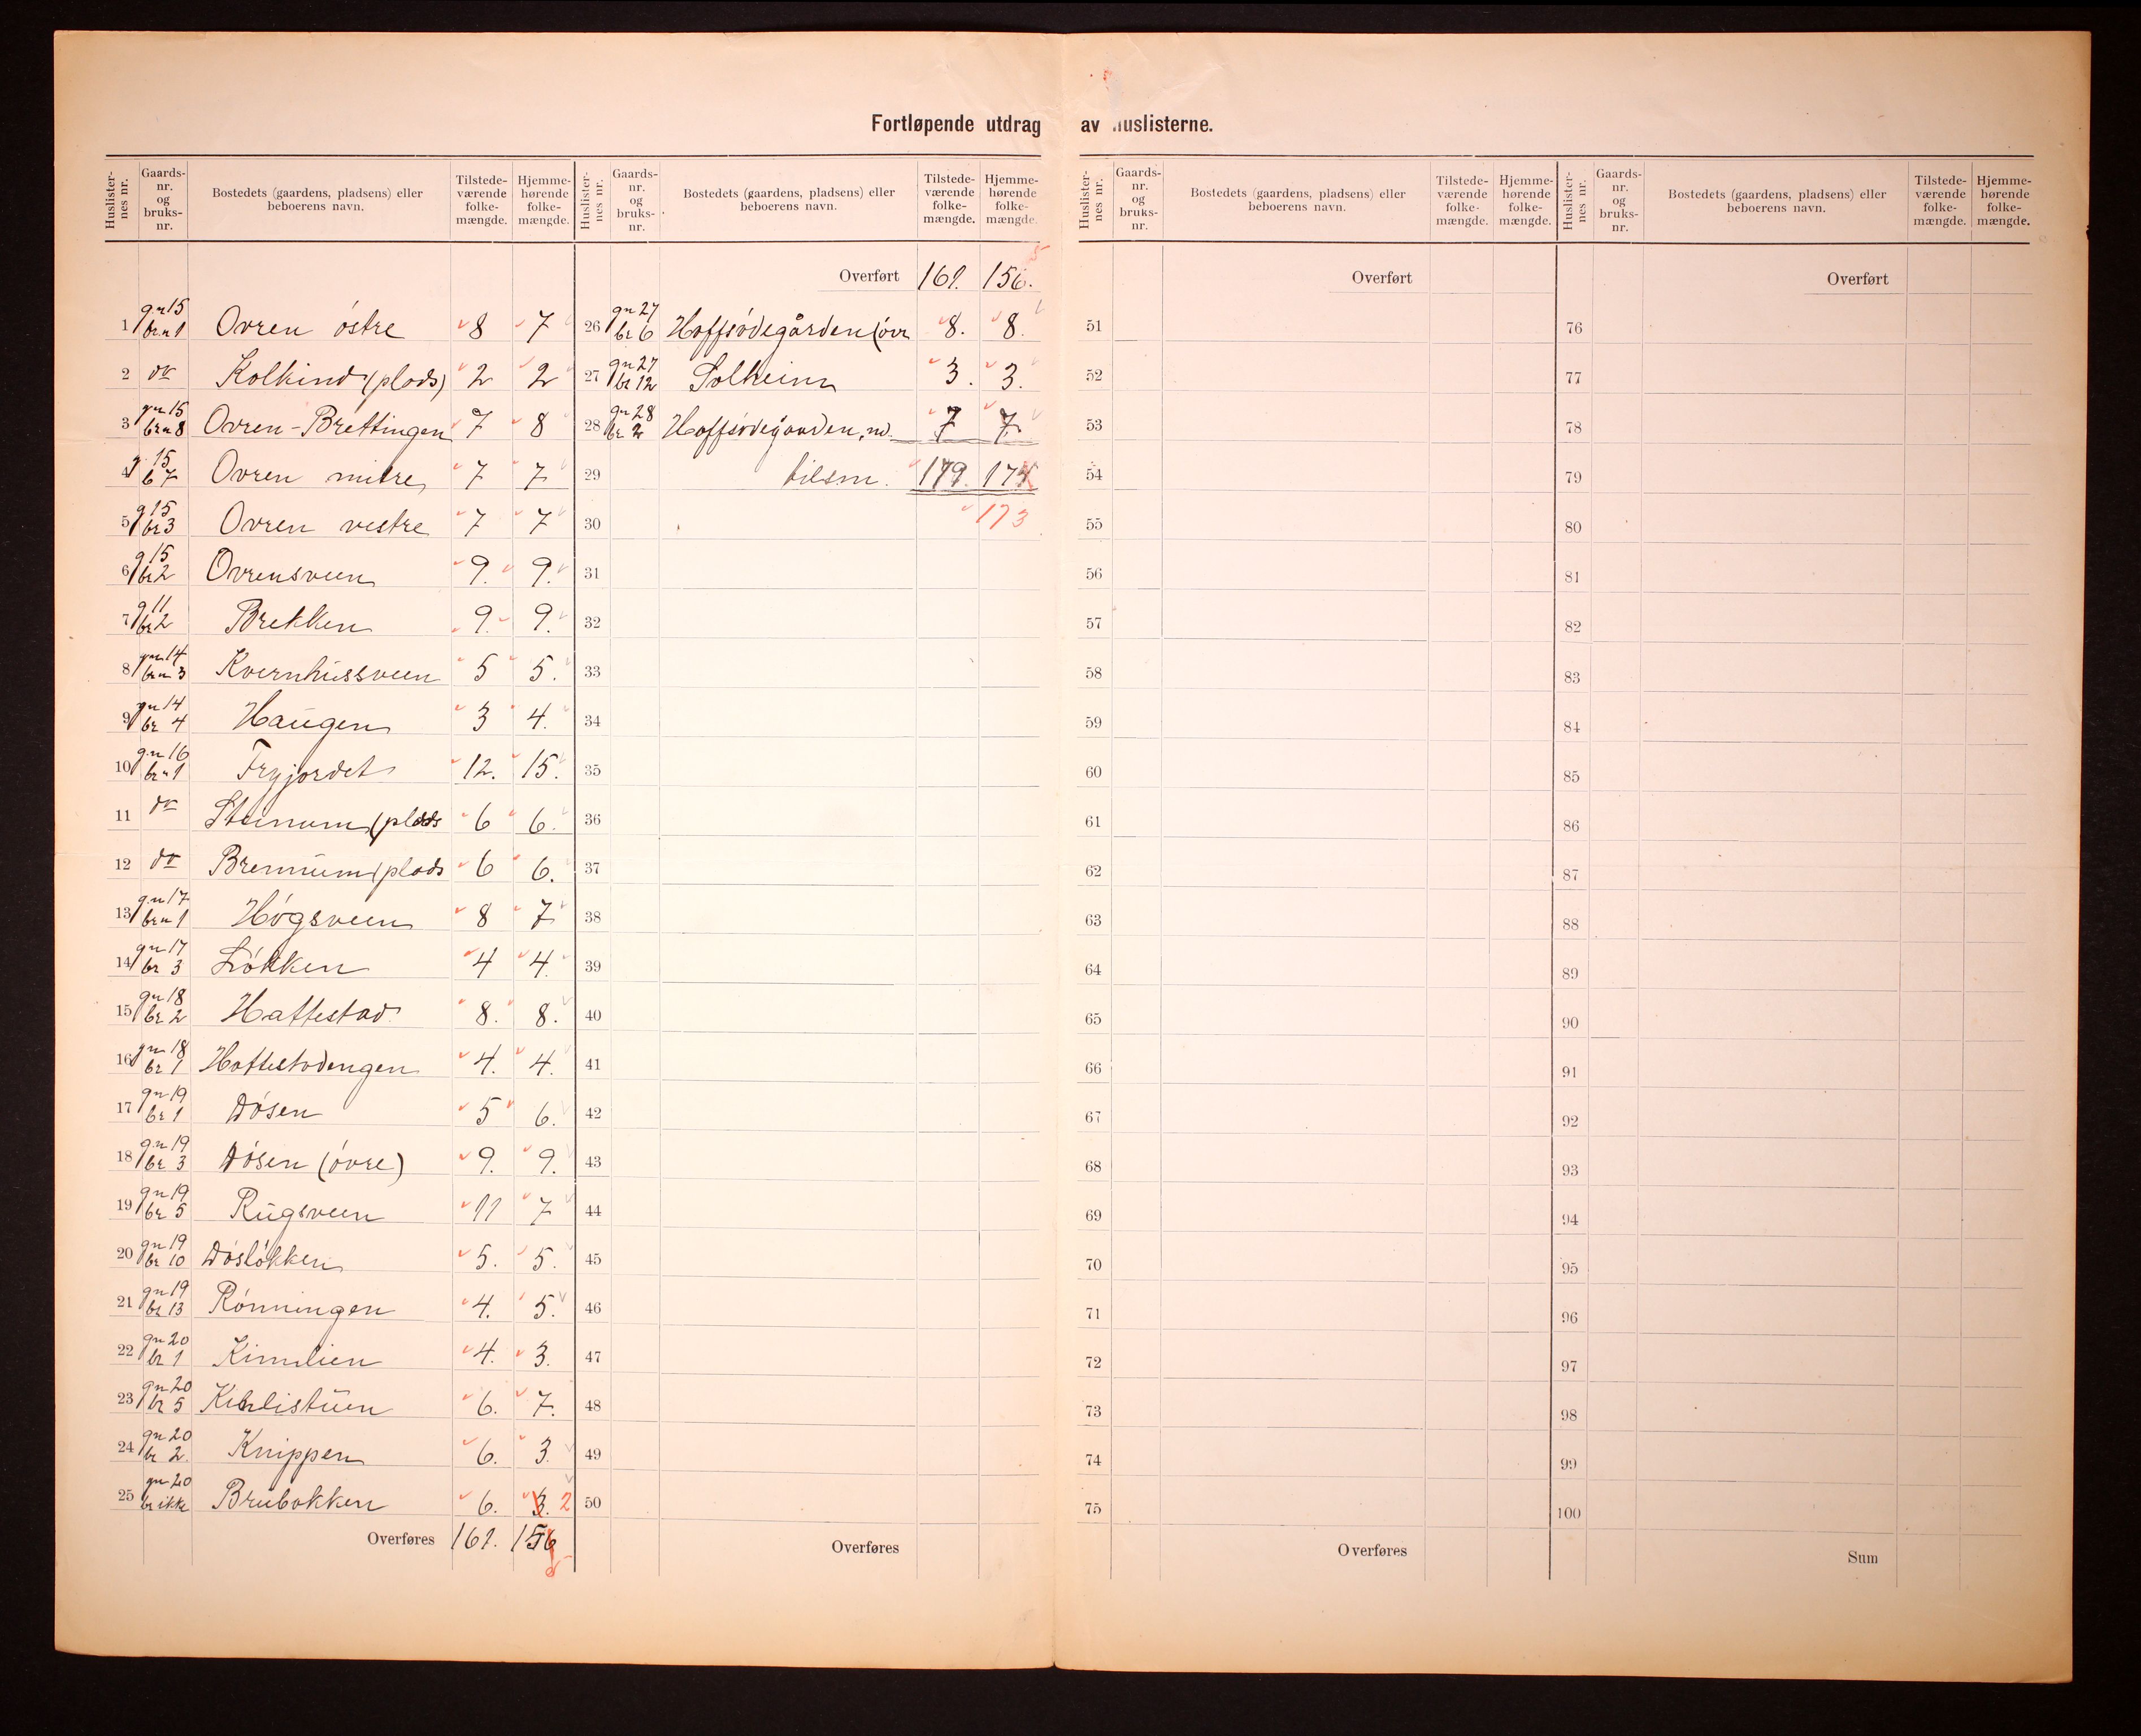 Fortløpende utdrag av huslisternе.
Huslister-nes nr. Gaards-nr. og bruks-nr. Bostedets (gaardens, pladsens) eller beboerens navn. Tilstede-værende folke-mængde. Hjemme-hørende folke-mængde.
1 g.n 15 br.n 1 Ovren østre 8 7
2 do Kolkind (plads) 2 2
3 gn 15 br.n 8 Ovren-Brettingen 7 8
4 g 15 b 7 Ovren mitre 7 7
5 g 15 br 3 Ovren vestre 7 7
6 g 15 br 2 Ovrensveen 9. 9.
7 g 11 br 2 Brekken 9. 9.
8 gn 14 br.n 3 Kvernhussveen 5 5.
9 gn 14 br 4 Haugen 3 4.
10 g.n 16 br.n 1 Frygjordet 12. 15.
11 do Stenum (plads 6 6.
12 do Brennum (plads 6 6.
13 g.n 17 br.n 1 Høgsveen 8 7
14 gn 17 br 3 Løkken 4 4.
15 gn 18 br 2 Hattestad 8. 8.
16 gn 18 br 1 Hattestadengen 4. 4.
17 gn 19 br 1 Døsen 5 6.
18 g.n 19 br 3 Døsen (øvre) 9. 9.
19 gn 19 br 5 Rugsveen 11 7
20 gn 19 br 10 Døsløkken 5. 5.
21 gn 19 br 13 Rønningen 4. 5.
22 gn 20 br 1 Kinnlien 4. 3.
23 gn 20 br 5 Kinnlistuen 6. 7.
24 gn 20 br 2. Knippen 6. 3.
25 gn 20 br ikke Brubakken 6. 3. 2
Overføres 161. 156 5
Huslister-nes nr. Gaards-nr. og bruks-nr. Bostedets (gaardens, pladsens) eller beboerens navn. Tilstede-værende folke-mængde. Hjemme-hørende folke-mængde.
Overført 161. 156. 5
26 gn 27 br 6 Hoffsødegården (øvr 8. 8.
27 gn 27 br 12 Solheim 3. 3.
28 gn 28 br 2 Hoffsødegaarden, nd. 7 7.
29 tilsm. 179. 174
30 173
31
32
33
34
35
36
37
38
39
40
41
42
43
44
45
46
47
48
49
50
Overføres
Huslister-nes nr. Gaards-nr. og bruks-nr. Bostedets (gaardens, pladsens) eller beboerens navn. Tilstede-værende folke-mængde. Hjemme-hørende folke-mængde.
Overført
51
52
53
54
55
56
57
58
59
60
61
62
63
64
65
66
67
68
69
70
71
72
73
74
75
Overføres
Huslister-nes nr. Gaards-nr. og bruks-nr. Bostedets (gaardens, pladsens) eller beboerens navn. Tilstede-værende folke-mængde. Hjemme-hørende folke-mængde.
Overført
76
77
78
79
80
81
82
83
84
85
86
87
88
89
90
91
92
93
94
95
96
97
98
99
100
Sum